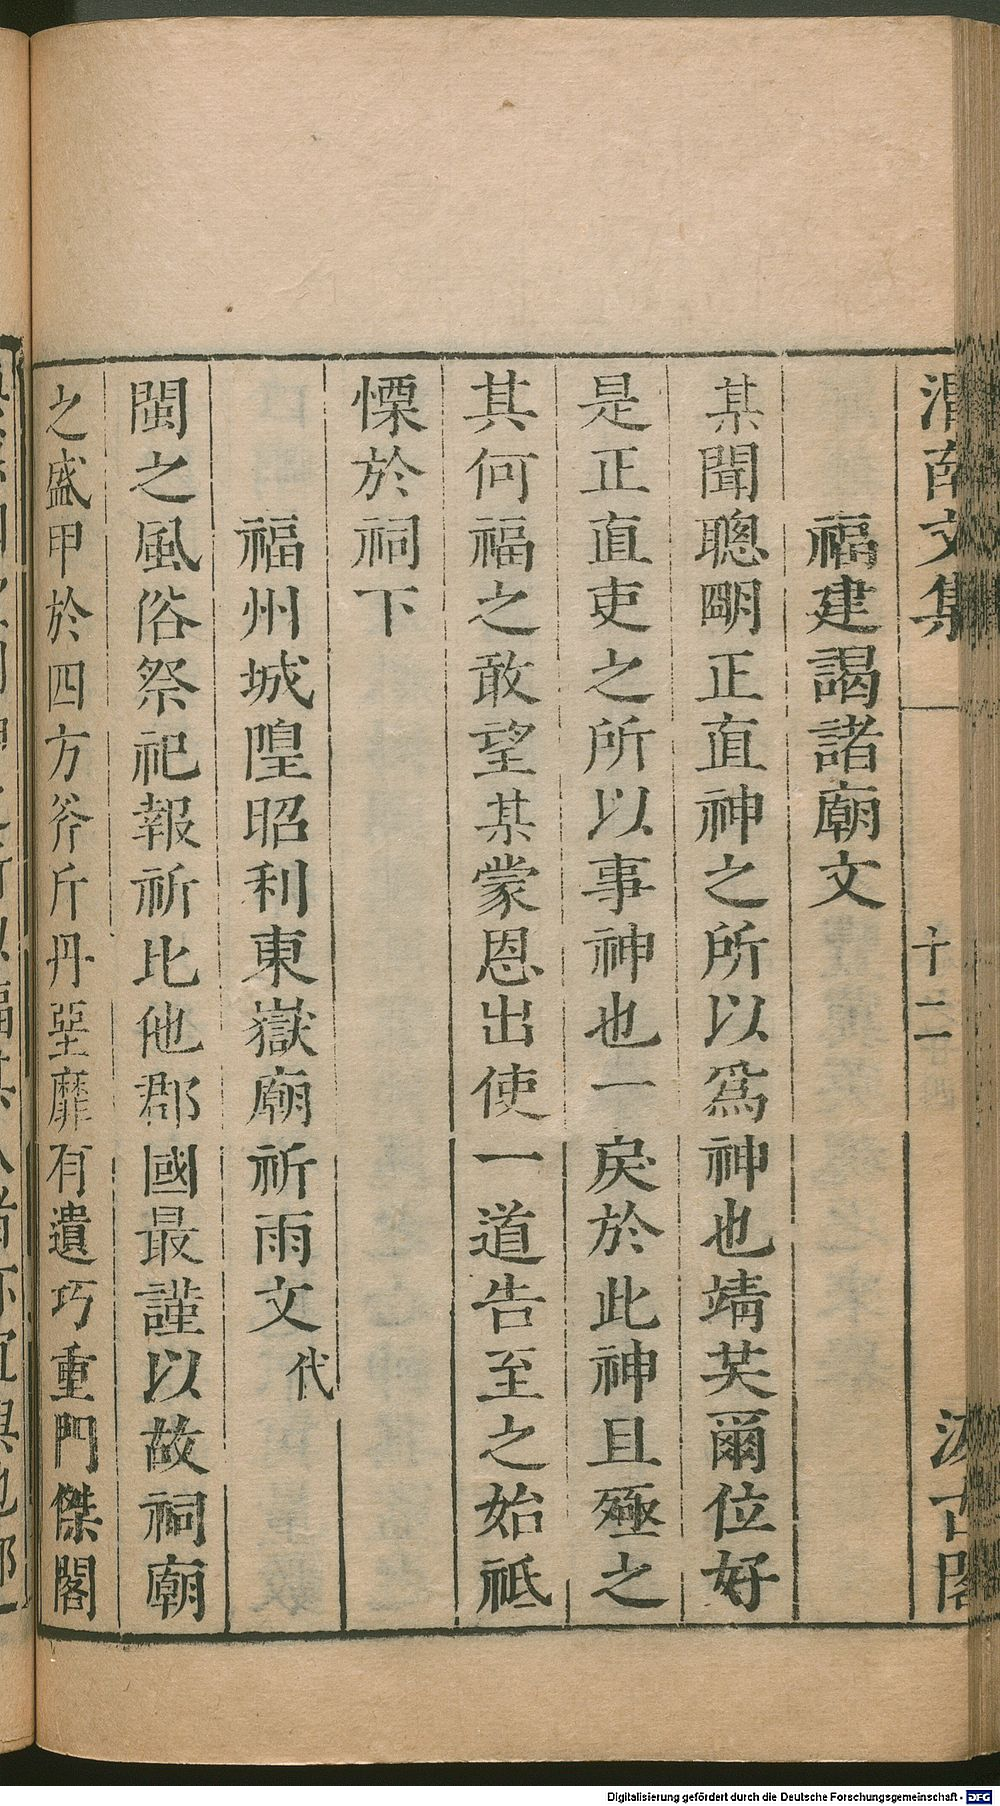 渭南文集 十二 汲古閣
福建謁諸廟文
某聞聰明正直神之所以爲神也靖共爾位好
是正直吏之所以事神也一戾於此神且殛之
其何福之敢望某蒙恩出使一道告至之始祗
慄於祠下
福州城隍昭利東嶽廟祈雨文代
閩之風俗祭祀報祈比他郡國最謹以故祠廟
之盛甲於四方斧斤丹堊靡有遺巧重門傑閣
Digitalisierung gefördert durch die Deutsche Forschungsgemeinschaft - DFG